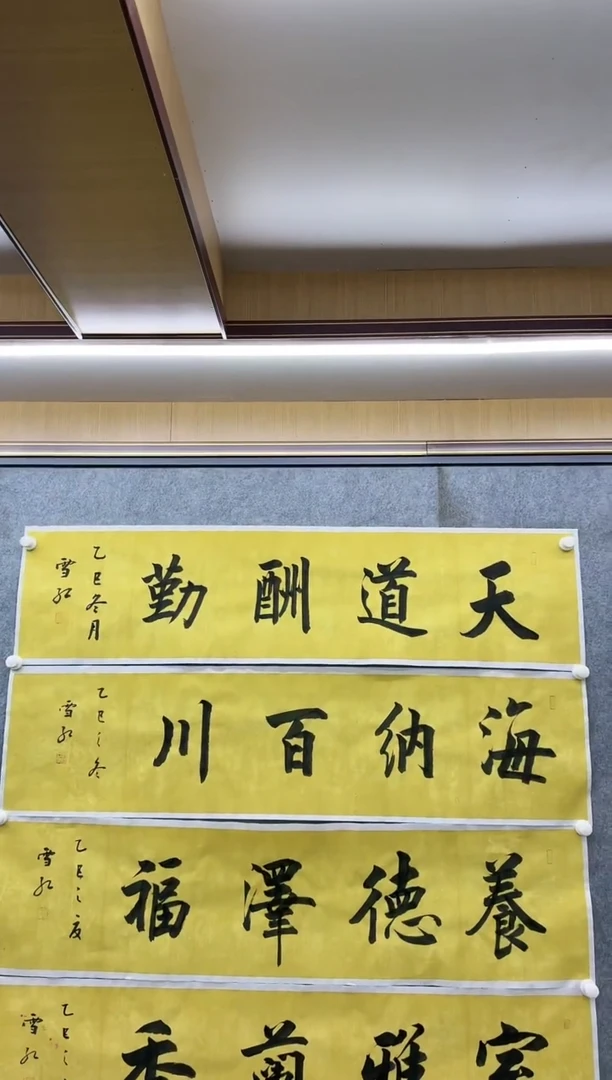 天道酬勤
乙巳冬月
雪红
海纳百川
乙巳之冬
雪红
養德澤福
乙巳之夏
雪红
室雅蘭香
乙巳之
雪红